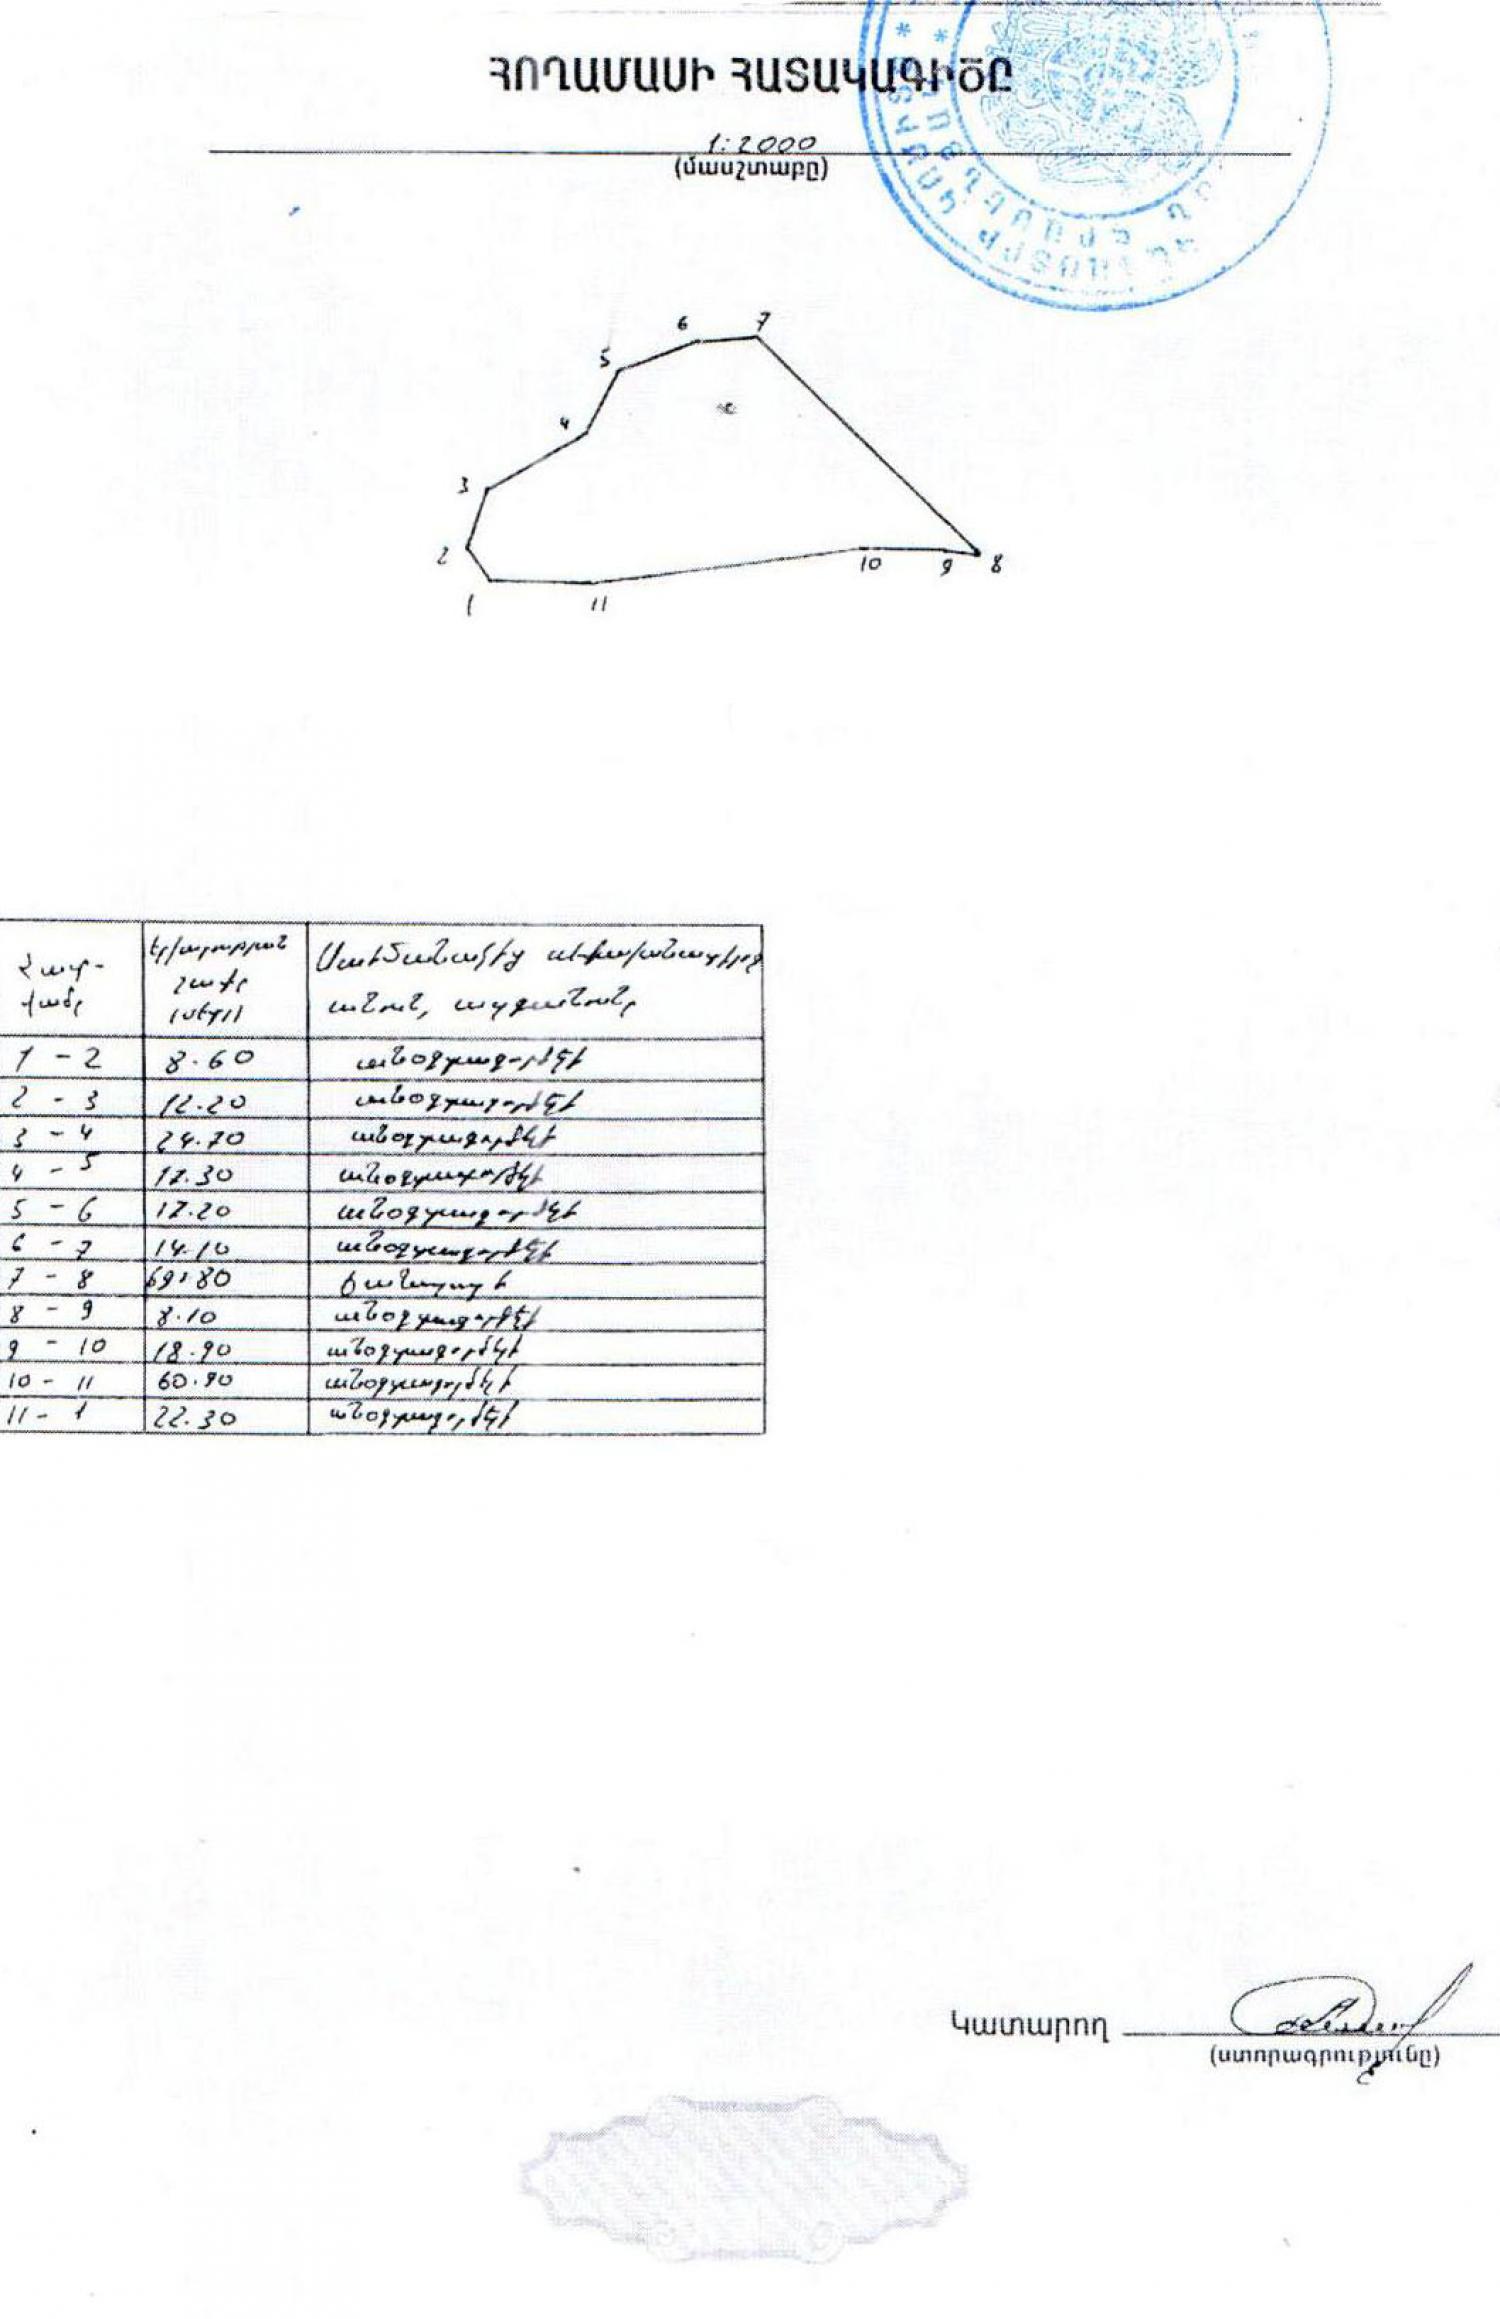 ՀՈՂԱՄԱՍԻ ՀԱՏԱԿԱԳԻԾԸ
1:2000
(մասշտաբը)
6 7
5
4
3
2 10 9 8
1 11
Հատ- երկարության Սահմանակից սեփականատիրոջ
վածը չափը անուն, ազգանունը
(մետր)
1 - 2 8.60 անօգտագործելի
2 - 3 12.20 անօգտագործելի
3 - 4 24.70 անօգտագործելի
4 - 5 17.30 անօգտագործելի
5 - 6 17.20 անօգտագործելի
6 - 7 14.10 անօգտագործելի
7 - 8 69.80 ճանապարհ
8 - 9 8.10 անօգտագործելի
9 - 10 18.90 անօգտագործելի
10 - 11 60.90 անօգտագործելի
11 - 1 22.30 անօգտագործելի
Կատարող
(ստորագրությունը)